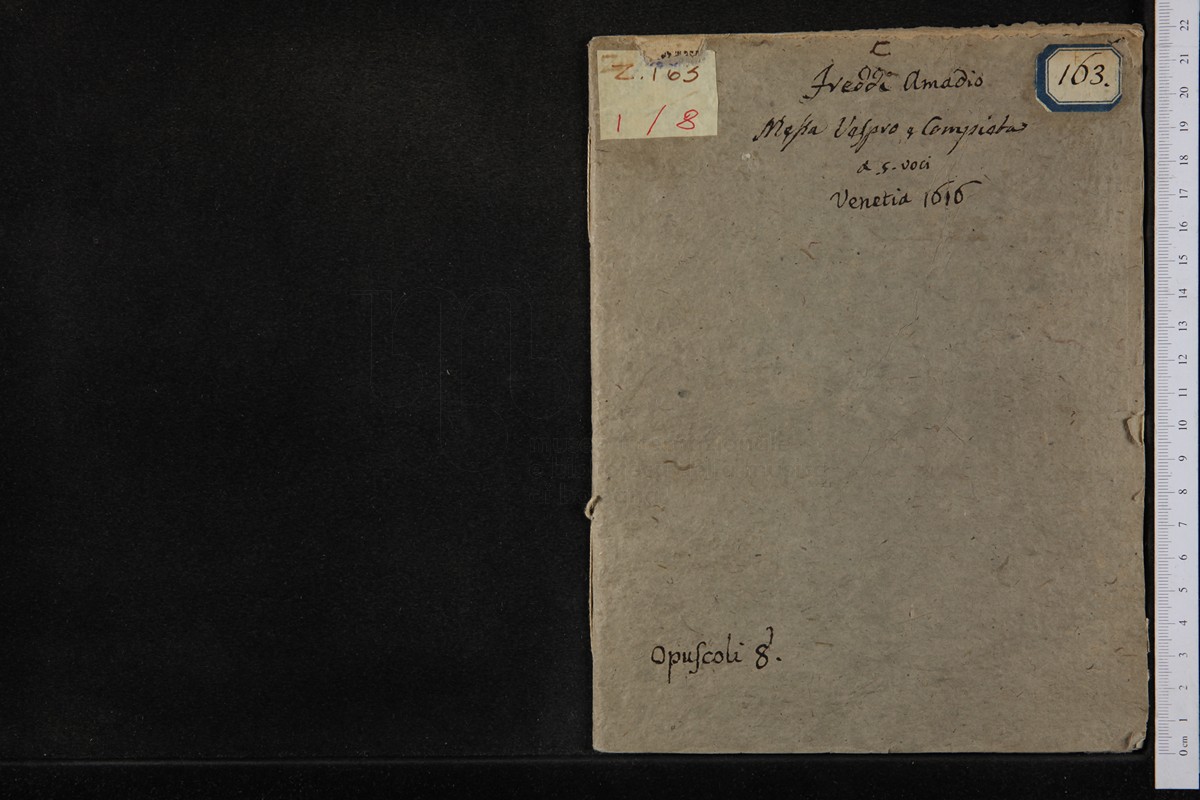 Z. 163
1 / 8
C
Fredda Amadio
163.
Messa Vespro e Compieta
a 5. voci
Venetia 1616
Opuſcoli 8.
22
21
20
19
18
17
16
15
14
13
12
11
10
9
8
7
6
5
4
3
2
1
0 cm